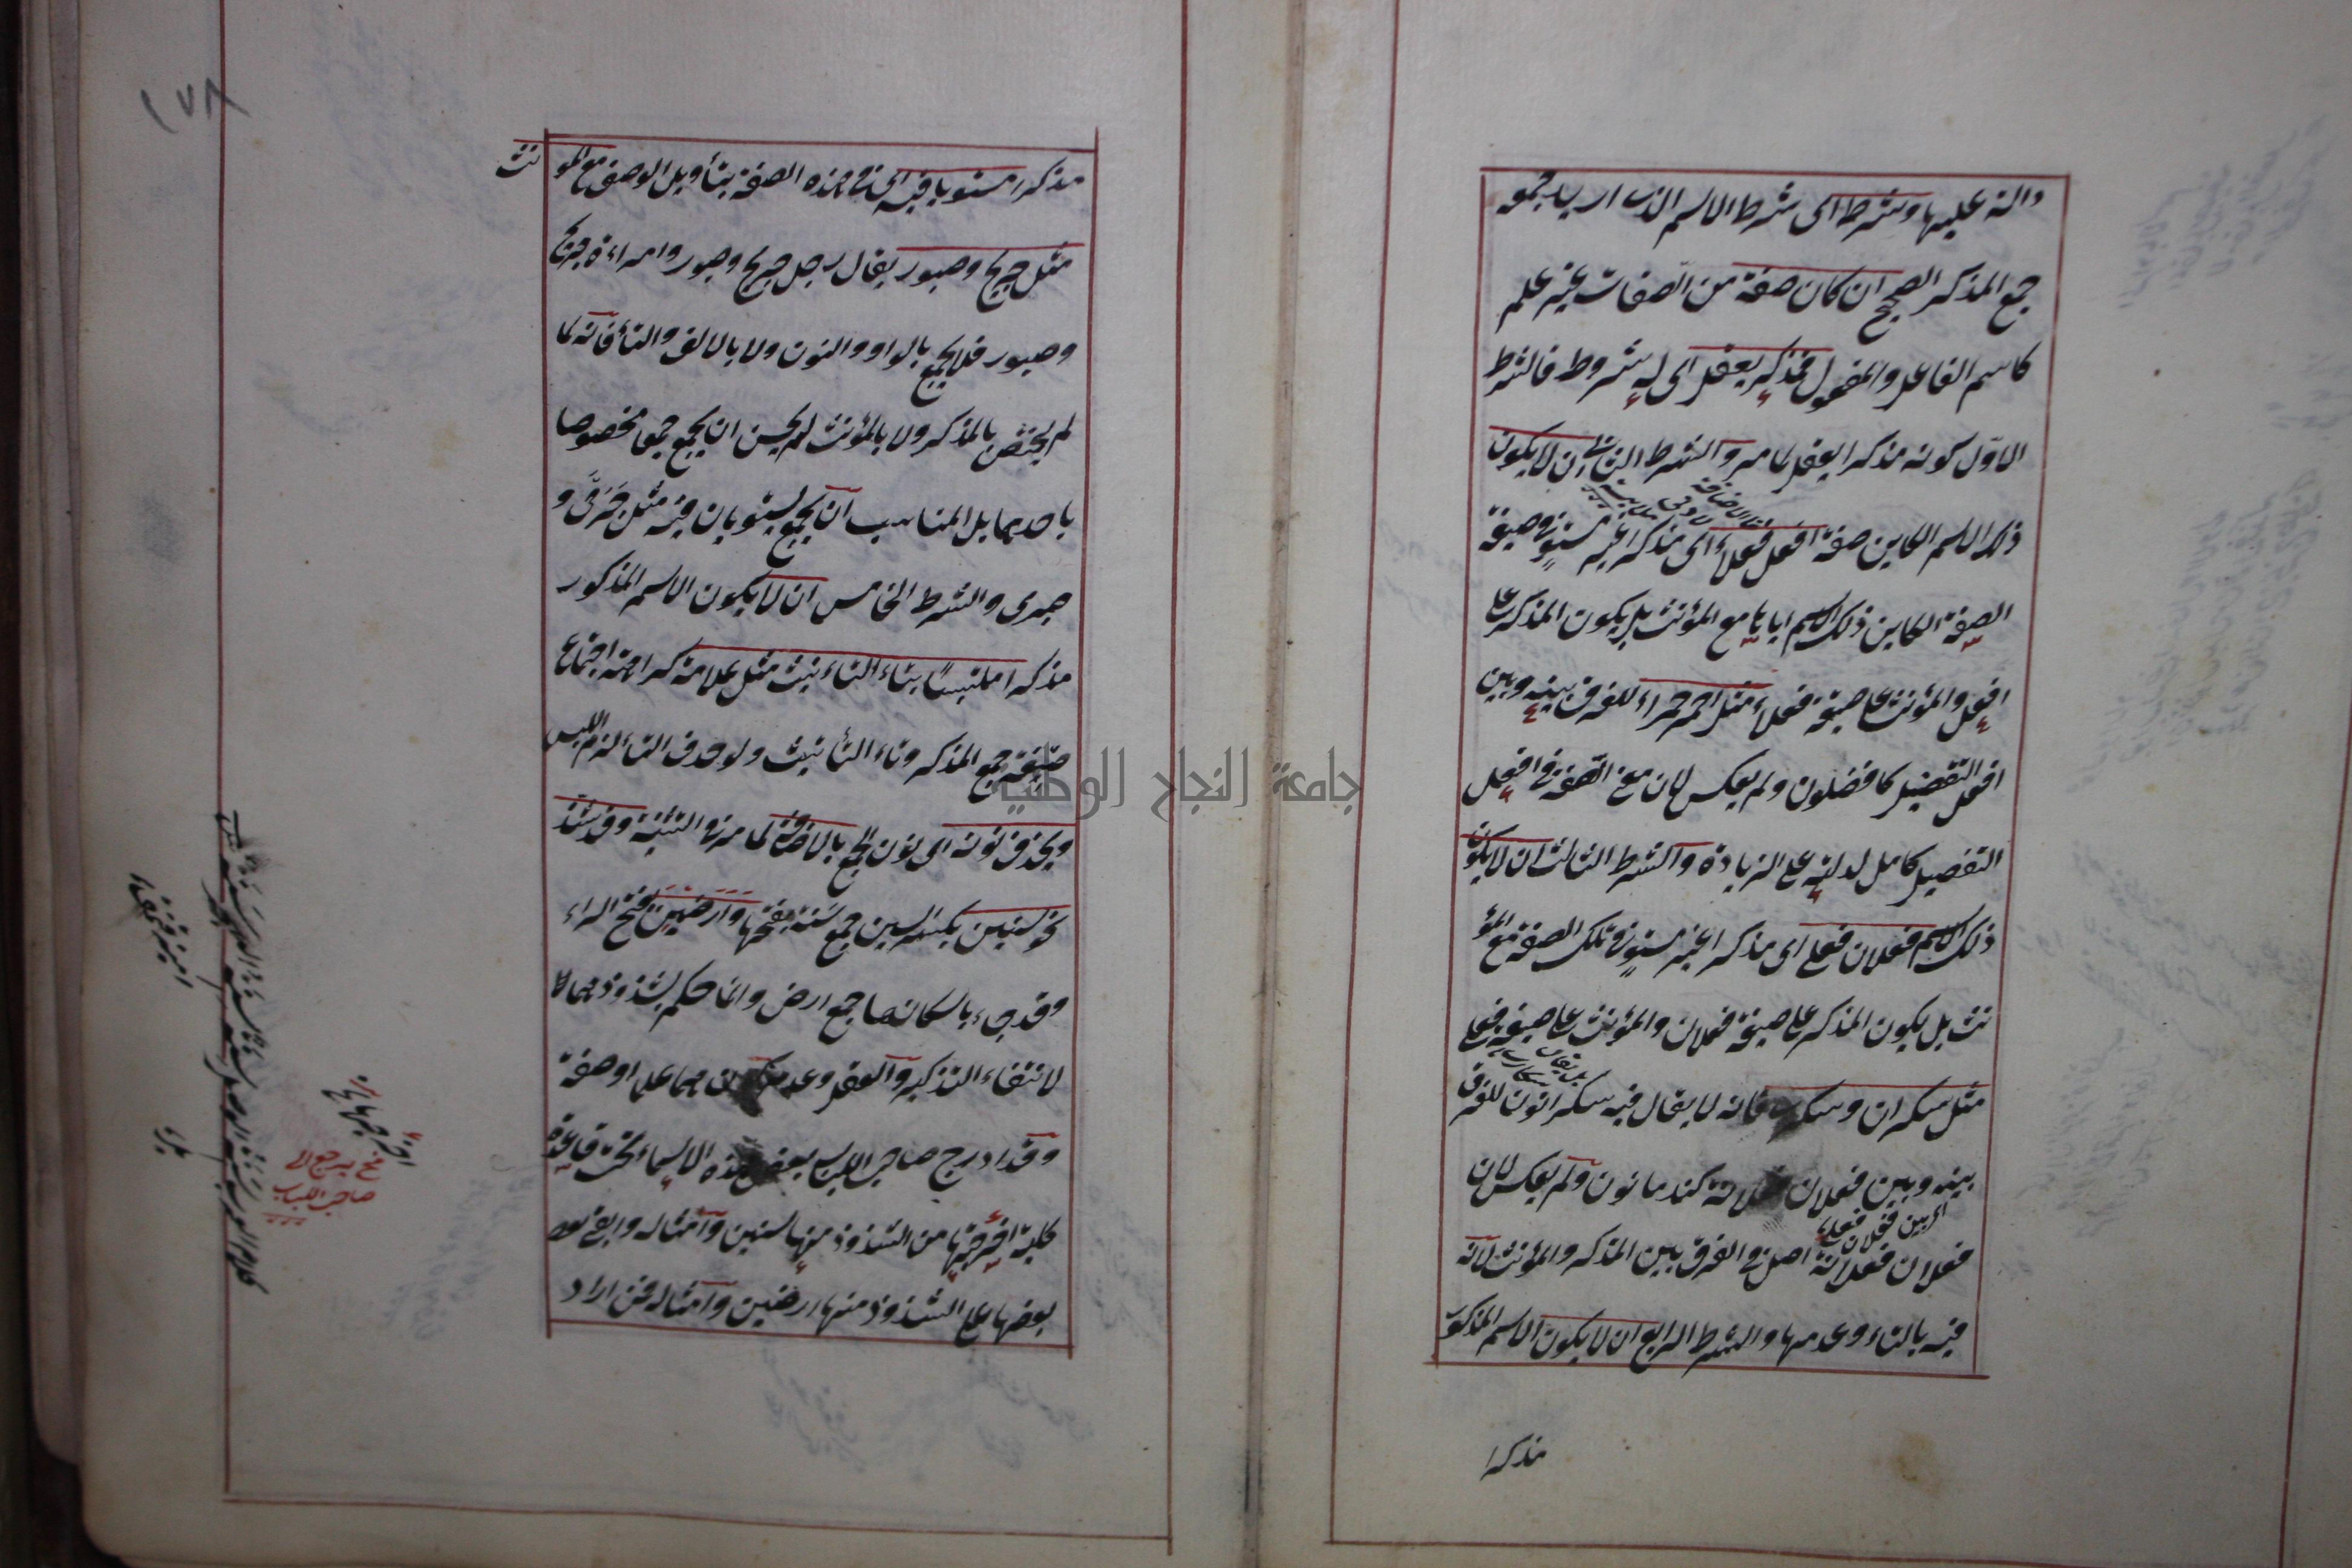 دالة عليها وشرطه اى شرط الاسم الذى اريد جمعه
جمع المذكر الصحيح ان كان صفة من الصفات غير علم
كاسم الفاعل والمفعول فمذكر يعقل اى له شروط فالشرط
الاوّل كونه مذكرا يعقل لما مر والشرط الثانى ان لا يكون
ذلك الاسم الكاين صفة افعل فعلاء اى مذكرا غير مستو فى صيغة
الصفة الكاين ذلك الاسم اياها مع المؤنث بل يكون المذكر على
افعل والمؤنث على صيغة فعلاء مثل احمر حمراء للفرق بينه وبين
افعل التفضيل كافضلون ولم يعكس لان معنى الصفة فى افعل
التفضيل كامل لدلالته على الزيادة والشرط الثالث ان لا يكون
ذلك الاسم فعلان فعلى اى مذكرا غير مستو فى تلك الصفة مع المؤ
نث بل يكون المذكر على صيغة فعلان والمؤنث على صيغة فعلى
بل يقال سكارى
مثل سكران وسكرى فانه لا يقال فيه سكرانون للفرق
بينه وبين فعلان فعلانة كندمانون ولم يعكس لان
اى بين فعلان فعلى
فعلان فعلانة اصل فى الفرق بين المذكر والمؤنث لانه
فيه بالتاء وعدمها والشرط الرابع ان لا يكون الاسم المذكور
مذكرا
١٧٨
مذكرا مستويا فيه اى فى هذه الصفة بتأويل الوصف مع المؤنث
مثل جريح وصبور يقال رجل جريح وصبور وامراءة جريح
وصبور فلا يجمع بالواو والنون ولا بالالف والتاء فانه لما
لم يختص بالمذكر ولا بالمؤنث لم يحسن ان يجمع جمعا مخصوصا
باحدهما بل المناسب ان يجمع يستويان فيه مثل جَرْحَى و
صبرى والشرط الخامس ان لا يكون الاسم المذكور
مذكرا ملتبسًا بتاء التانيث مثل علامة كراهة اجتماع
صيغة جمع المذكر وتاء التأنيث ولو حذف التاء لزم اللبس
ويحذف نونه اى نون الجمع بالاضافة لما مر فى التثنية وقد شذ
نحو سنين بكسر السين جمع سنة بفتحها وارَضين بفتح الراء
وقد جاء باسكانها جمع ارض وانما حكم بشذوذهما
لانتفاء التذكير والعقل وعدم كون هما علما او صفة
وقد ادرج صاحب اللباب بعض هذه الاسماء تحت قاعدة
كلية اخرجها من الشذوذ منها سنين وامثاله وابقى
بعضها على الشذوذ منها ارضين وامثاله فمن اراد
صاحب اللباب
جامعة النجاح الوطنية